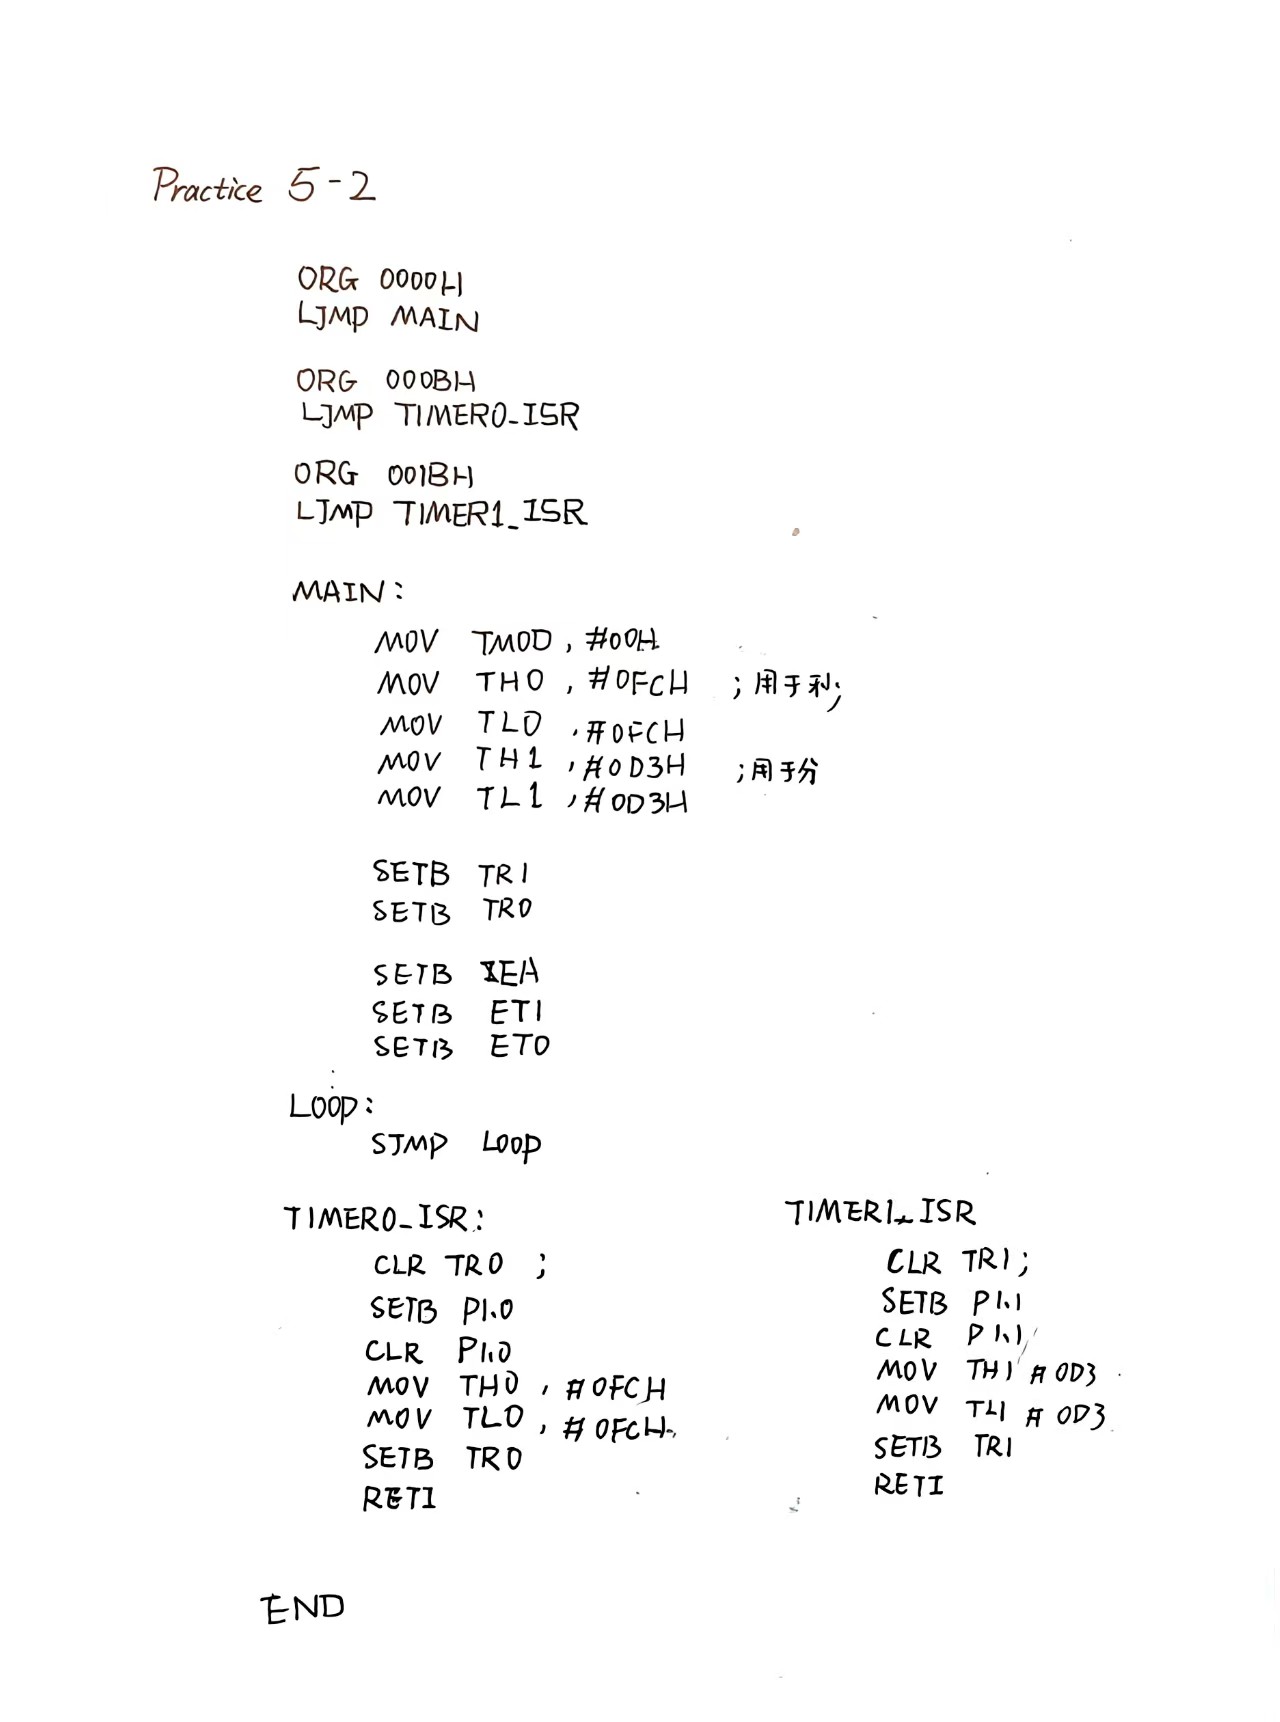 Practice 5-2
ORG 0000H
LJMP MAIN
ORG 000BH
LJMP TIMER0_ISR
ORG 001BH
LJMP TIMER1_ISR
MAIN:
MOV TMOD, #00H
MOV TH0, #0FCH ;用于利;
MOV TL0, #0FCH
MOV TH1, #0D3H ;用于分
MOV TL1, #0D3H
SETB TR1
SETB TR0
SETB EA
SETB ET1
SETB ET0
LOOP:
SJMP LOOP
TIMER0_ISR:
CLR TR0 ;
SETB P1.0
CLR P1.0
MOV TH0, #0FCH
MOV TL0, #0FCH
SETB TR0
RETI
TIMER1_ISR
CLR TR1;
SETB P1.1
CLR P1.1
MOV TH1 #0D3
MOV TL1 #0D3
SETB TR1
RETI
END